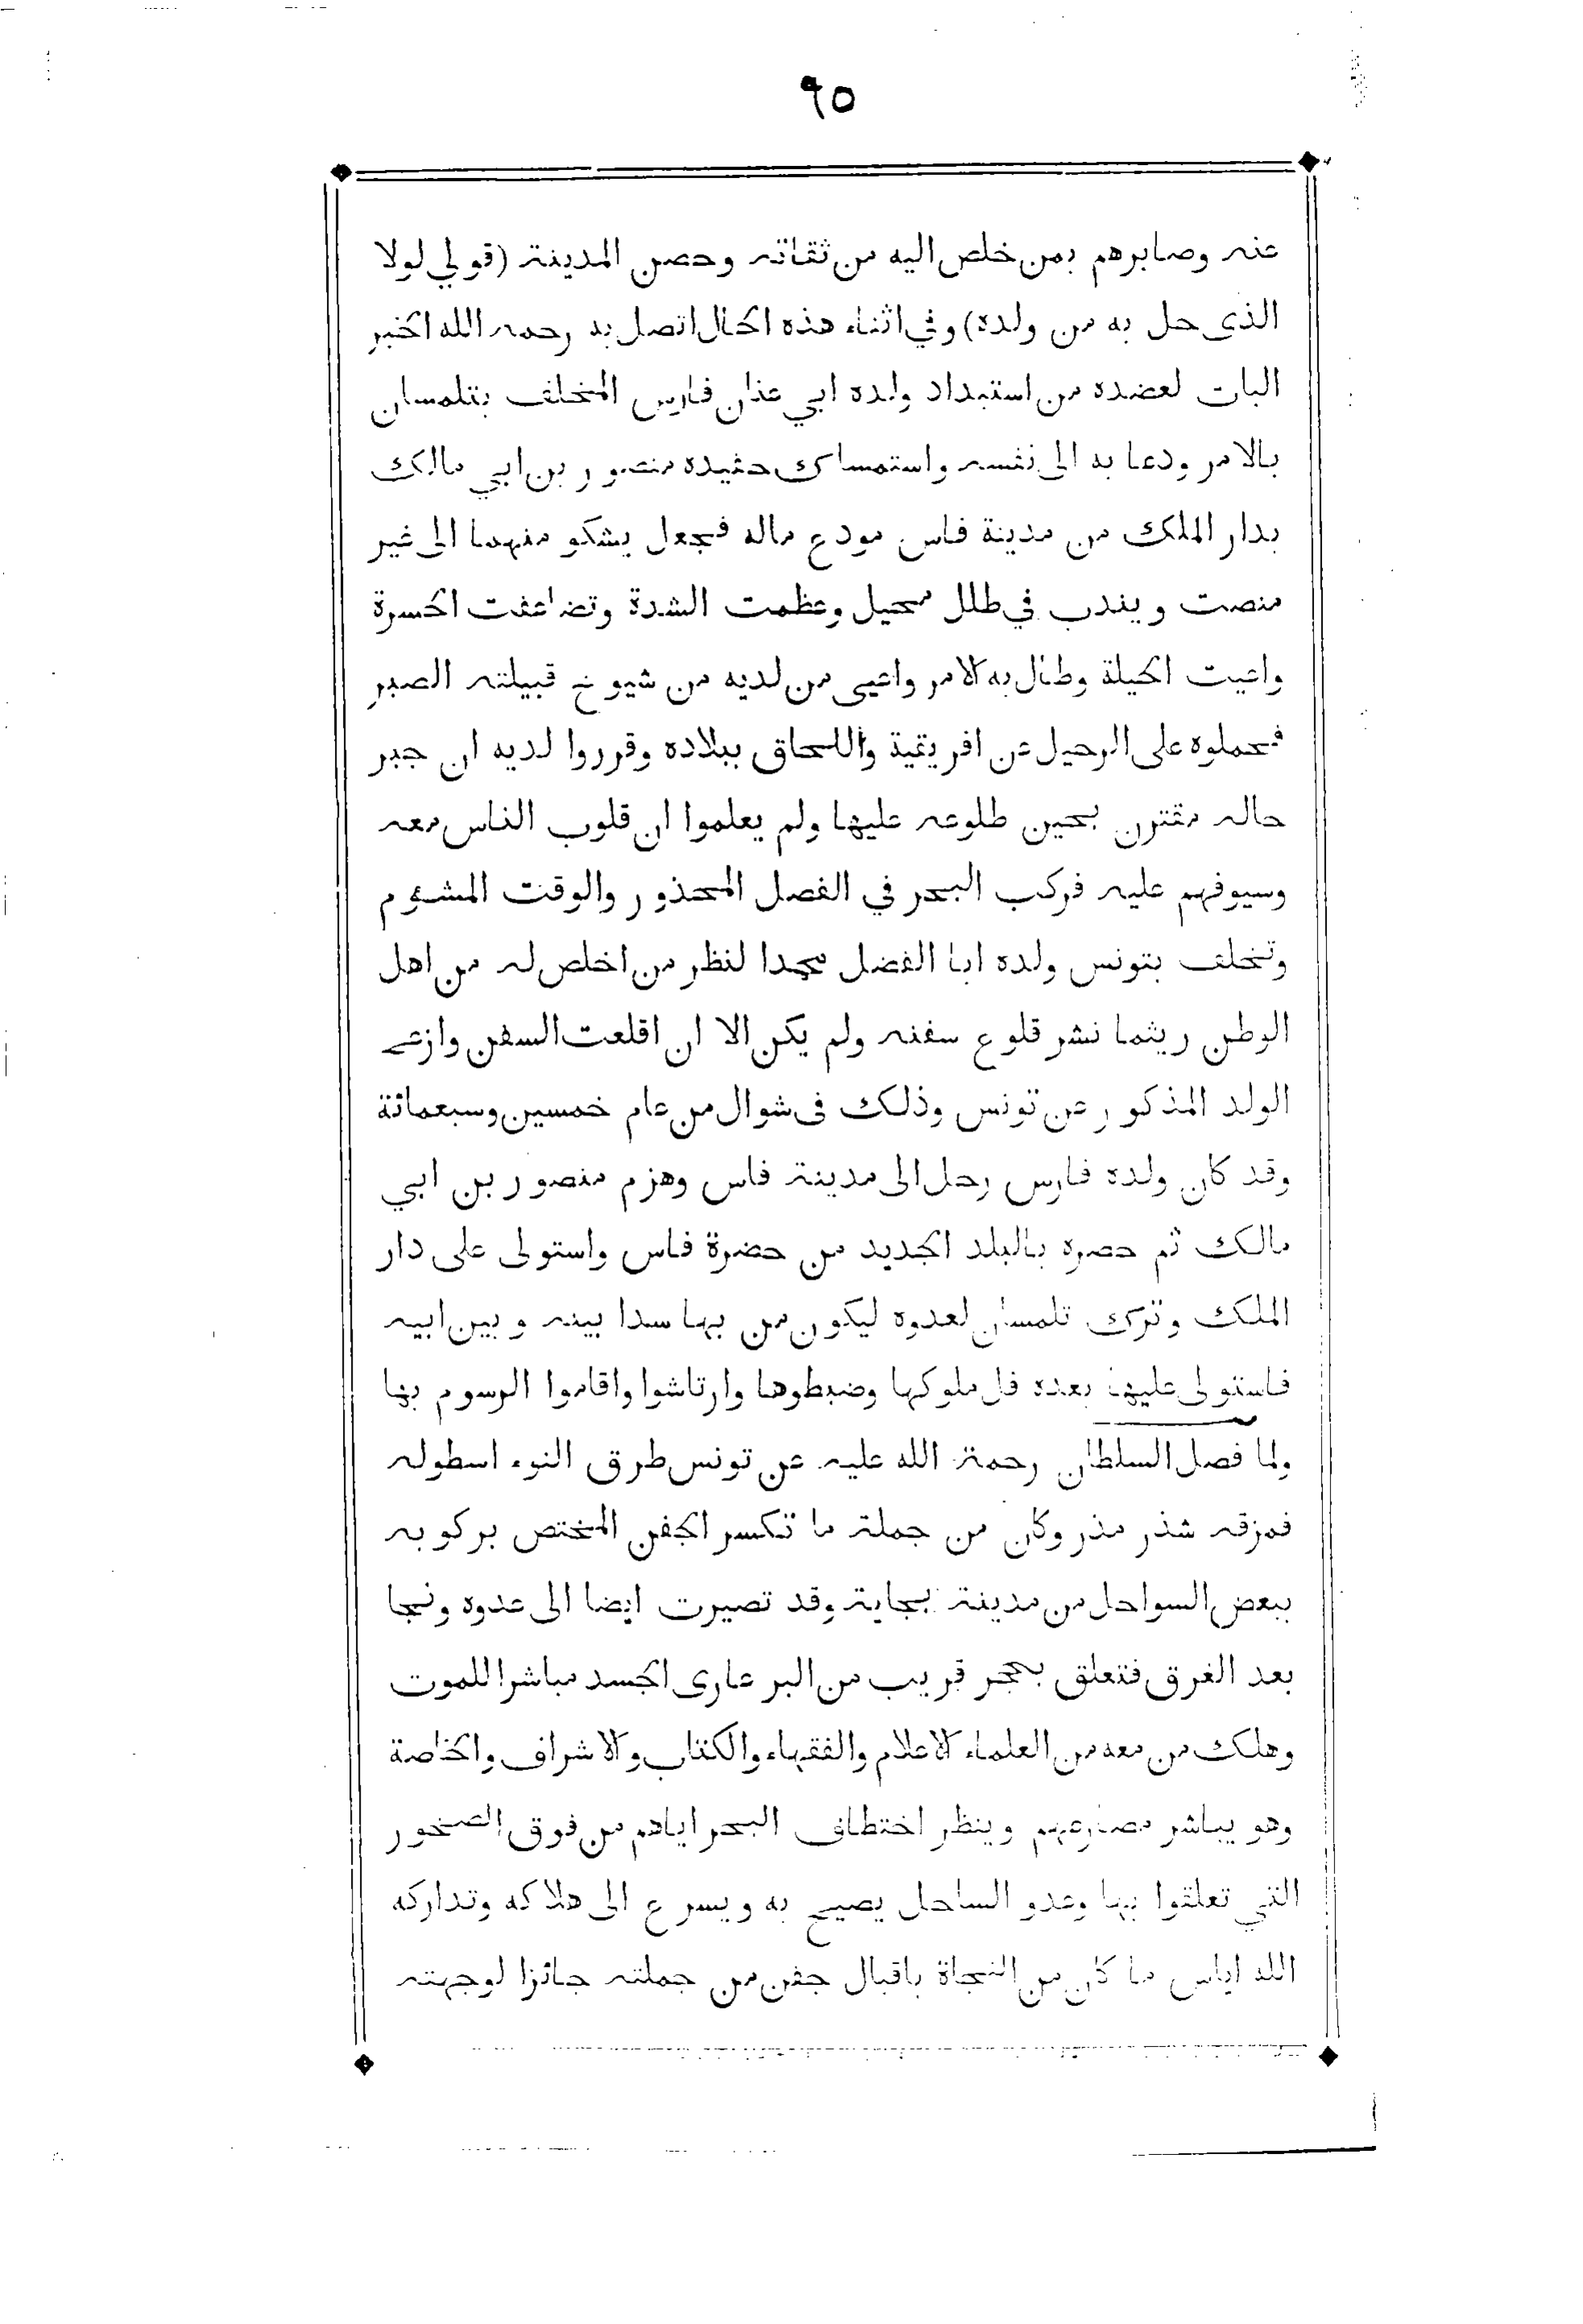 ٩٥
عنه وصابرهم بمن خلص اليه من ثقاته وحصن المدينة (قولي لولا
الذى حل به من ولده) وفي اثناء هذه الحال اتصل به رحمه الله الخبر
البات لعضده من استبداد ولده ابي عنان فارس المخلف بتلمسان
بالامر ودعا به الى نفسه واستمساك حفيده منصور بن ابي مالك
بدار الملك من مدينة فاس مودع ماله فجعل يشكو منهما الى غير
منصت ويندب في طلل محيل وعظمت الشدة وتضاعفت الحسرة
واعيت الحيلة وطال به الامر واعيى من لديه من شيوخ قبيلته الصبر
فحملوه على الرحيل عن افريقية واللحاق ببلاده وقرروا لديه ان جبر
حاله مقترن بحين طلوعه عليها ولم يعلموا ان قلوب الناس معه
وسيوفهم عليه فركب البحر في الفصل المحذور والوقت المشئوم
وتخلف بتونس ولده ابا الفضل محمدا لنظر من اخلص له من اهل
الوطن ريثما نشر قلوع سفنه ولم يكن الا ان اقلعت السفن وازعج
الولد المذكور عن تونس وذلك فى شوال من عام خمسين وسبعمائة
وقد كان ولده فارس رحل الى مدينة فاس وهزم منصور بن ابي
مالك ثم حصره بالبلد الجديد من حضرة فاس واستولى على دار
الملك وترك تلمسان لعدوه ليكون من بها سدا بينه وبين ابيه
فاستولى عليها بعده فل ملوكها وضبطوها وارتاشوا واقاموا الرسوم بها
ولما فصل السلطان رحمة الله عليه عن تونس طرق النوء اسطوله
فمزقه شذر مذر وكان من جملة ما تكسر الجفن المختص بركوبه
ببعض السواحل من مدينة بجاية وقد تصيرت ايضا الى عدوه ونجا
بعد الغرق فتعلق بحجر قريب من البر عارى الجسد مباشرا للموت
وهلك من معه من العلماء الاعلام والفقهاء والكتاب والاشراف والخاصة
وهو يباشر مصارعهم وينظر اختطاف البحر اياهم من فوق الصخور
التي تعلقوا بها وعدو الساحل يصيح به ويسرع الى هلاكه وتداركه
الله اياس ما كان من النجاة باقبال جفن من جملته جائزا لوجهته